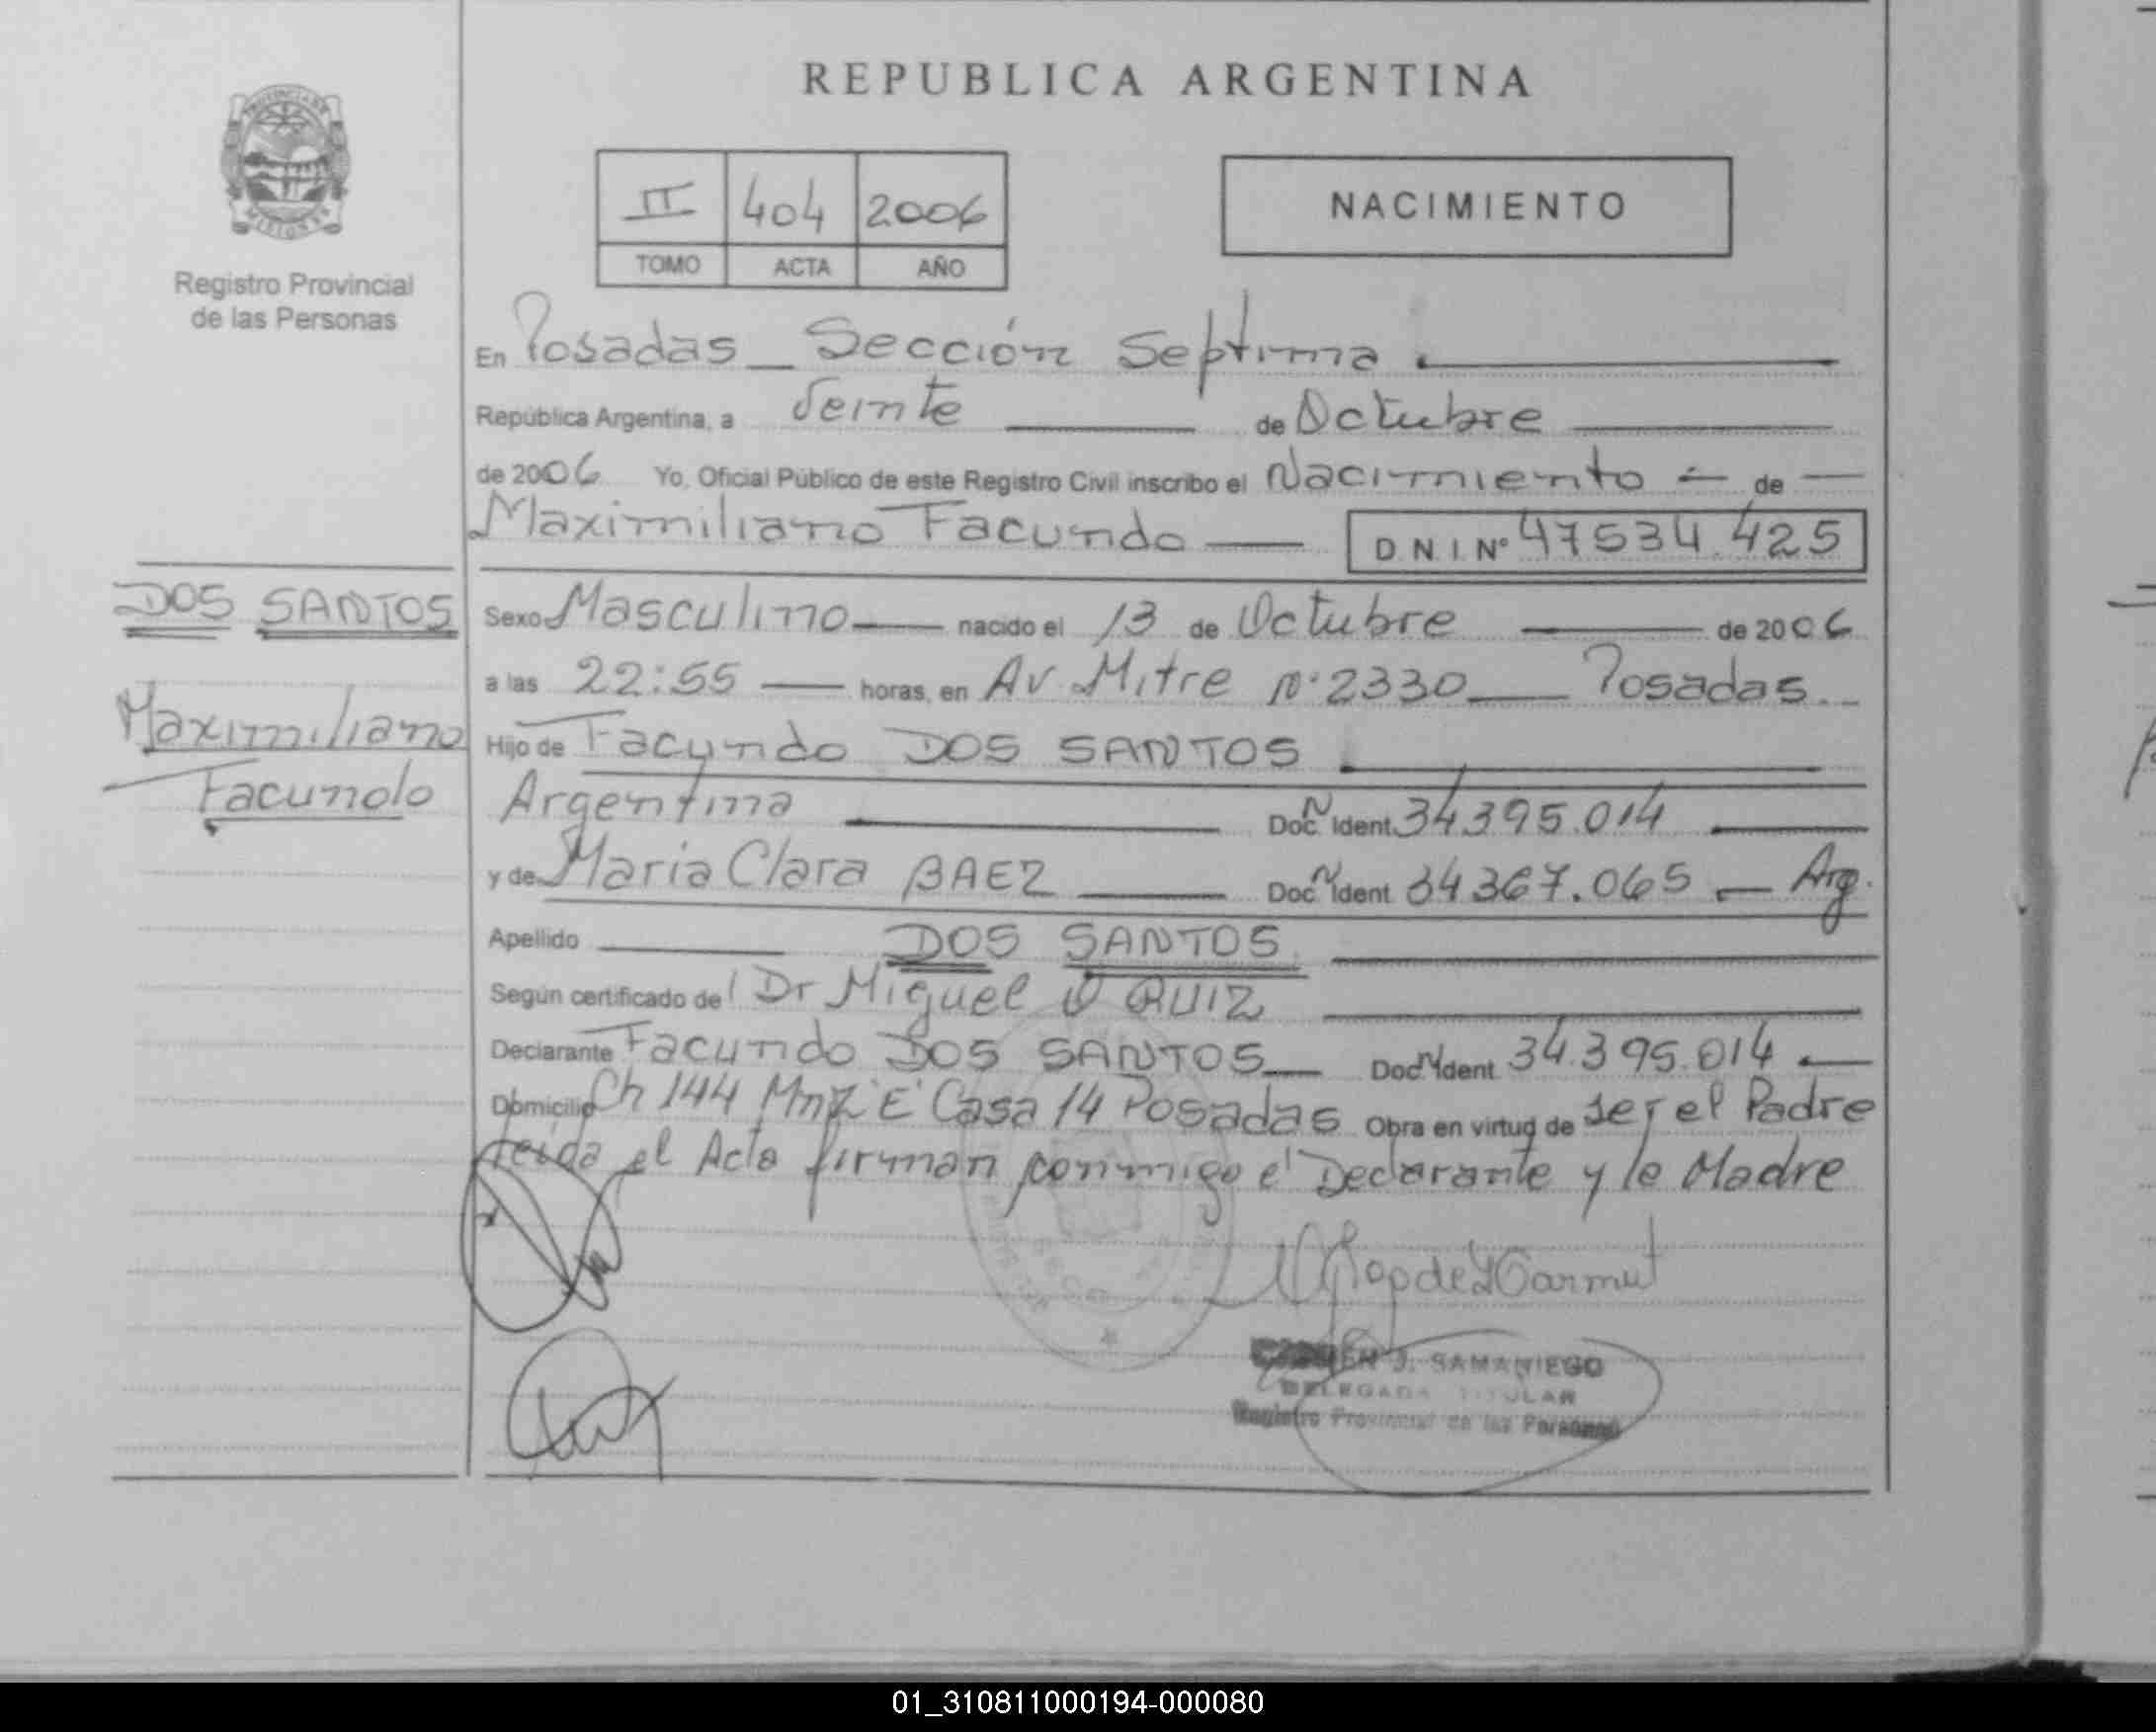 REPUBLICA ARGENTINA
PROVINCIA DE
MISIONES
Registro Provincial
de las Personas
II 404 2006
TOMO ACTA AÑO
NACIMIENTO
En Posadas _ Sección Septima
República Argentina, a Veinte de Octubre
de 2006 Yo, Oficial Público de este Registro Civil inscribo el Nacimiento de
Maximiliano Facundo D.N.I. Nº 47534.425
DOS SANTOS
Maximiliano
Facundo
Sexo Masculino nacido el 13 de Octubre de 2006
a las 22:55 horas, en Av. Mitre Nº 2330 Posadas
Hijo de Facundo DOS SANTOS
Argentina Doc. N Ident. 34395.014
y de Maria Clara BAEZ Doc. N Ident 34367.065 Arg.
Apellido DOS SANTOS
Según certificado del Dr Miguel O RUIZ
Declarante Facundo DOS SANTOS Doc N Ident. 34.395.014
Domicilio Ch 144 Mnz "E" Casa 14 Posadas Obra en virtud de ser el Padre
leida el Acta firman conmigo el Declarante y la Madre
J. SAMANIEGO
DELEGADA TITULAR
Registro Provincial de las Personas
01_310811000194-000080